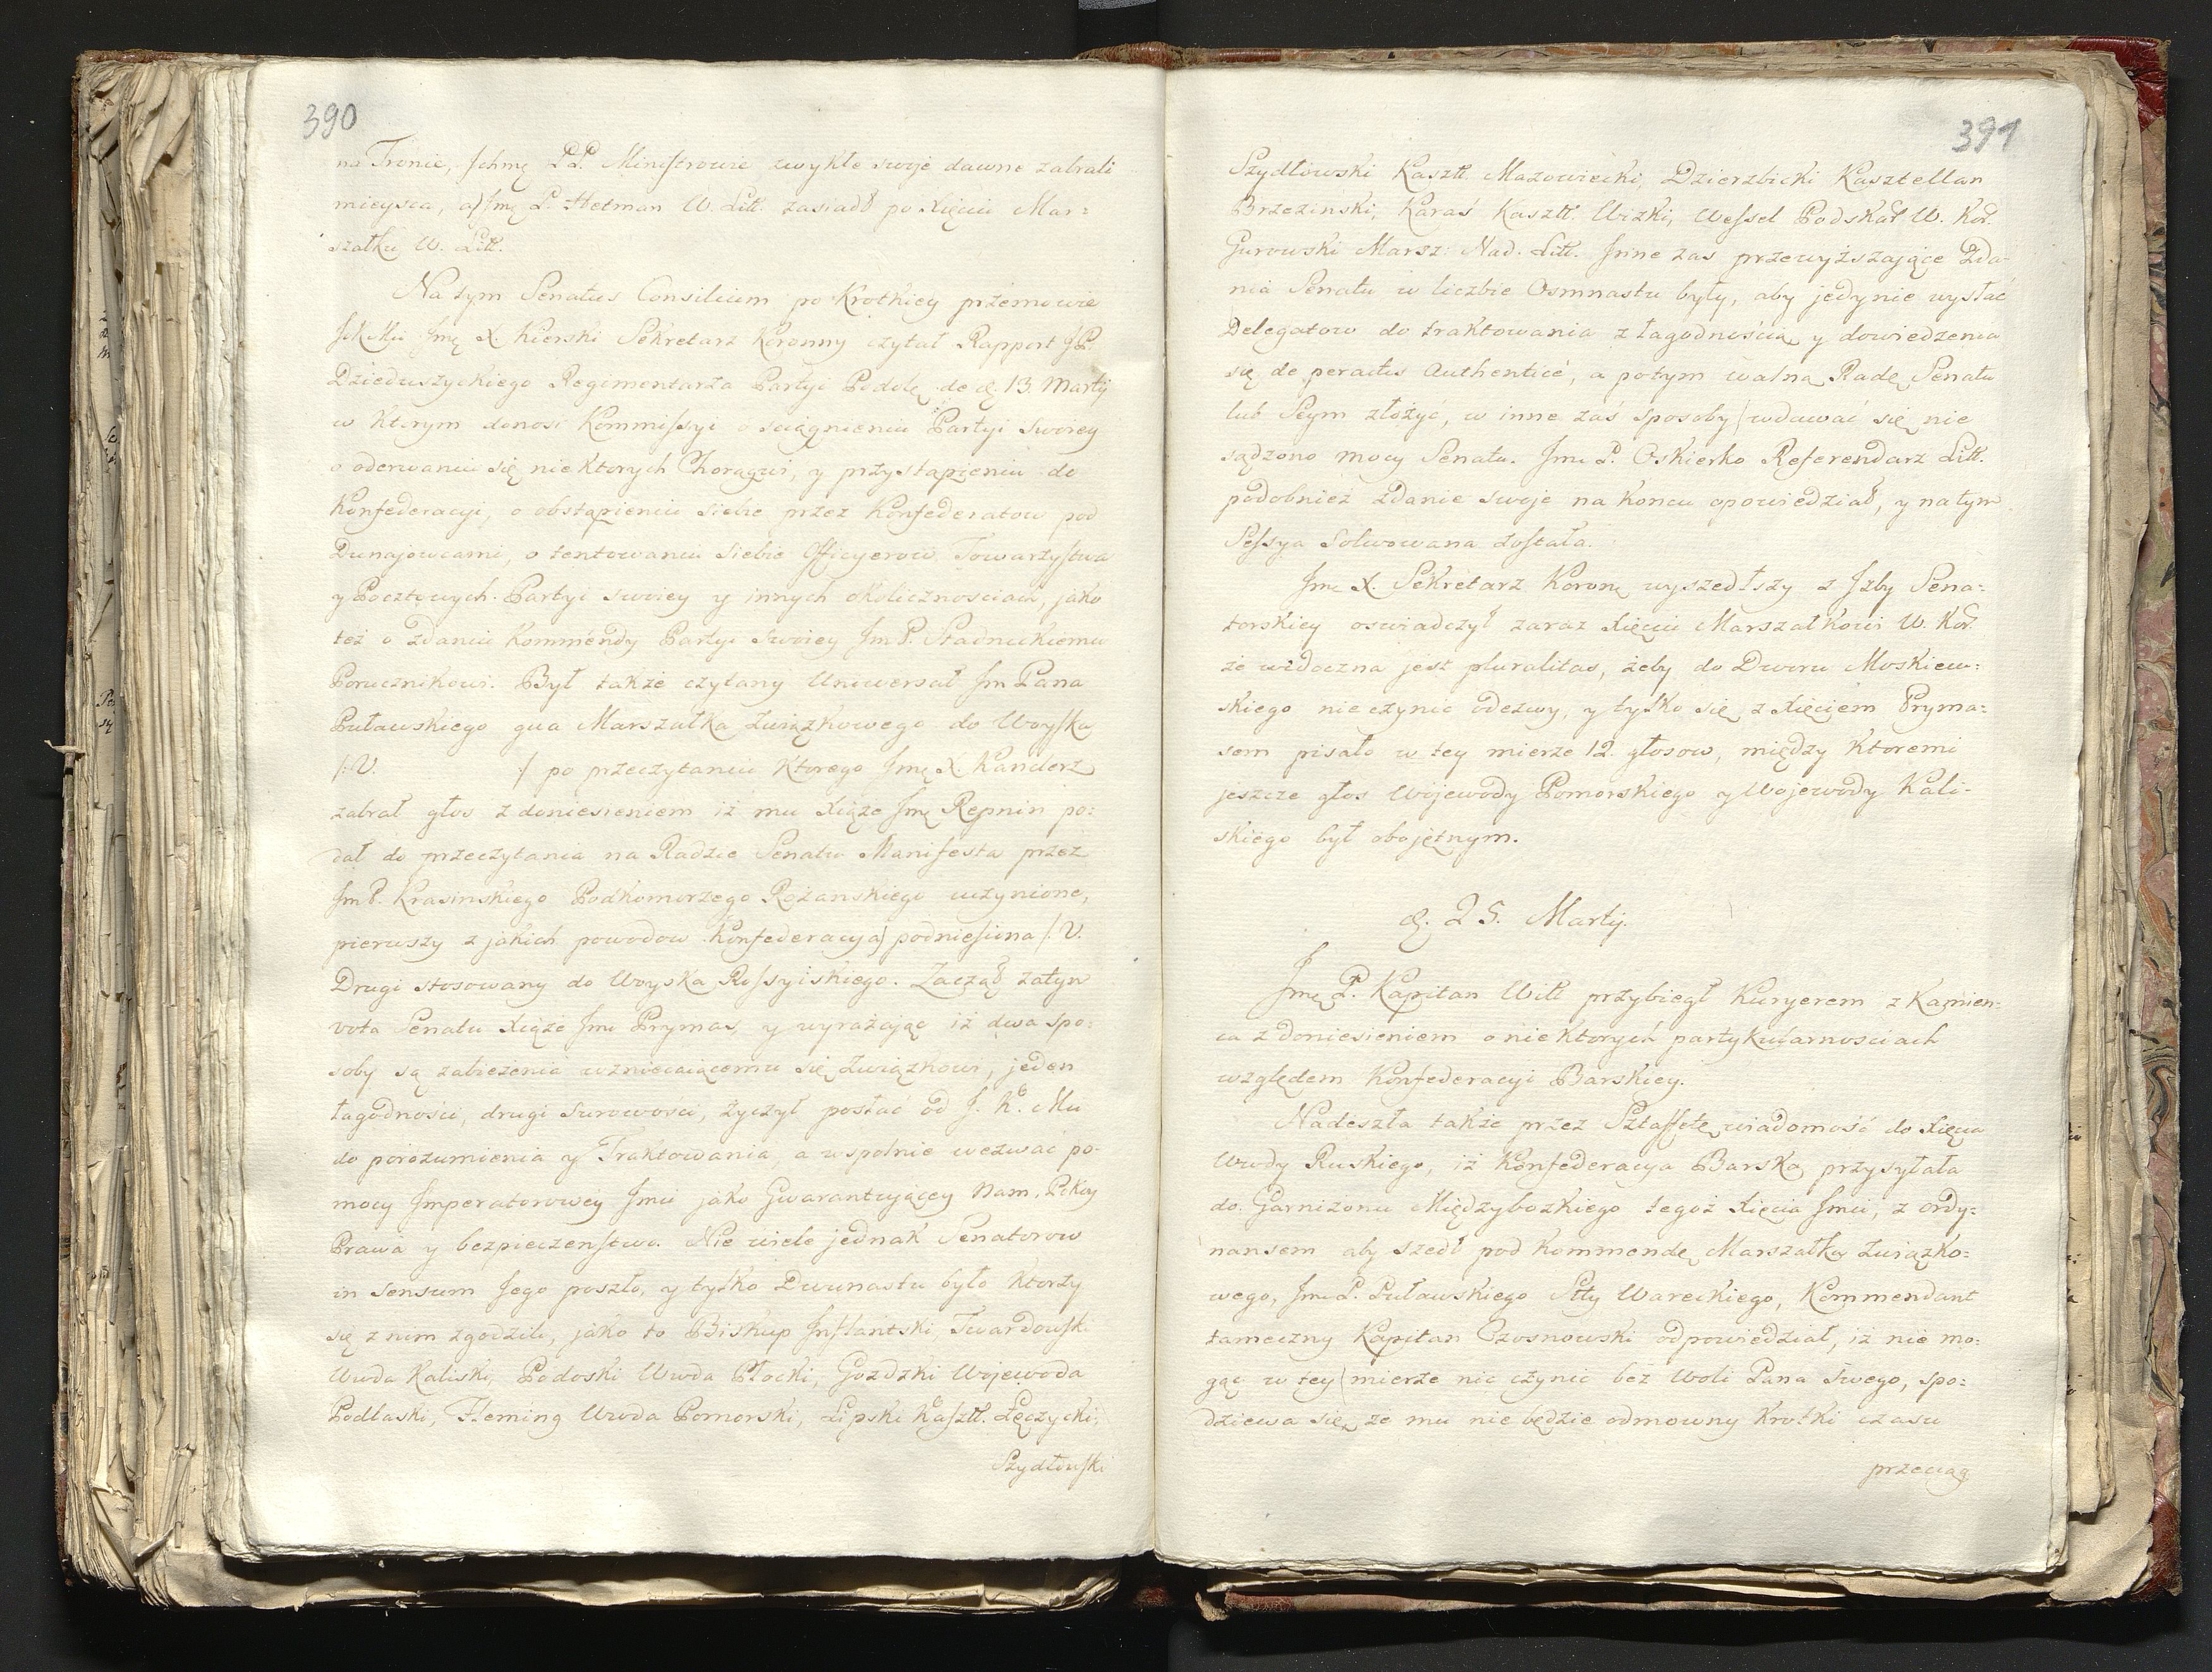 390
na Tronie, Ichmę PP. Ministrowie zwykłe swoje dawne zabrali
mieysca, a Jmę P. Hetman W. Litt. zasiadł po Xięciu Mar=
szałku W. Litt.
Na tym Senatus Consilium po krotkiey przemowie
JKMci Jmę X. Kierski Sekretarz Koronny czytał Rapport JP.
Dzieduszyckiego Regimentarza Partyi Podolę de d. 13. Martij
w ktorym donosi Kommissyi o sciągnieniu Partyi swoiey
o oderwaniu się niektorych Chorągwi, y przystąpieniu do
Konfederacyi, o obstąpieniu siebie przez Konfederatow pod
Dunajowcami, o tentowaniu siebie Officyerow Towarzystwa
y Pocztowych Partyi swoiey y innych okolicznosciach, jako
też o zdaniu Kommendy Partyi swoiey Jm P. Stadnickiemu
Porucznikowi. Był także czytany Uniwersał Jm Pana
Puławskiego qua Marszałka Związkowego do Woyska
/: V. :/ po przeczytaniu ktorego Jmę X. Kanclerz
zabrał głos z doniesieniem iż mu Xiąże Jmę Repnin po=
dał do przeczytania na Radzie Senatu Manifesta przez
Jm P. Krasinskiego Podkomorzego Rożanskiego uczynione,
pierwszy z jakich powodow Konfederacya podniesiona /: V.
Drugi stosowany do Woyska Rossyiskiego. Zaczął zatym
vota Senatu Xiąże Jmć Prymas, y wyrażając iż dwa spo=
soby są zabieżenia wzniecaiącemu się Związkowi, jeden
łagodności, drugi surowości, życzył posłać od J. K. Mci
do porozumienia y Traktowania, a wspolnie wezwać po=
mocy Imperatorowey Jmci jako Gwarantującey nam, Pokoy
Prawa y bezpieczenstwo. Nie wiele jednak Senatorow
in sensum Jego poszło, y tylko Dwunastu było ktorzy
się z nim zgodzili, jako to Biskup Inflantski, Twardowski
Wwda Kaliski, Podoski Wwda Płocki, Gozdzki Wojewoda
Podlaski, Fleming Wwda Pomorski, Lipski Kasztt. Łęczycki,
Szydłowski
391
Szydłowski Kasztt. Mazowiecki, Dzierzbicki Kasztellan
Brzezinski, Karaś Kasztt. Wizki, Wessel Podskar. W. Kor.
Gurowski Marsz: Nad. Litt. Inne zas przewyższające zda=
nia Senatu w liczbie Osmnastu były, aby jedynie wysłać
Delegatow do traktowania z łagodnością y dowiedzenia
się de peractis Authenticé, a potym walną Radę Senatu
lub Seym złożyć, w inne zaś sposoby wdawać się nie
sądzono mocy Senatu. Jmć P. Oskierko Referendarz Litt.
podobnież zdanie swoje na koncu opowiedział, y na tym
Sessya Solwowana została.
Jmć X. Sekretarz Koronę wyszedłszy z Izby Sena=
torskiey oswiadczył zaraz Xięciu Marszałkowi W. Kor.
że widoczna jest pluralitas, żeby do Dworu Moskiew=
skiego nie czynic odezwy, y tylko się z Xięciem Pryma=
sem pisało w tey mierze 12. głosow, między ktoremi
jeszcze głos Wojewody Pomorskiego y Wojewody Kali=
skiego był obojętnym.
d. 25. Martij.
Jmę P. Kapitan Witt przybiegł Kuryerem z Kamien=
ca z doniesieniem o niektorych partykularnosciach
względem Konfederacyi Barskiey.
Nadeszła także przez Sztaffetę wiadomość do Xięcia
Wwdy Ruskiego, iż Konfederacya Barska przysyłała
do Garnizonu Międzybozkiego tegoż Xięcia Jmci, z ordy=
nansem aby szedł pod Kommendę Marszałka Związko=
wego, Jmć P. Puławskiego Stty Wareckiego, Kommendant
tameczny Kapitan Czosnowski odpowiedział, iż nie mo=
gąc w tey mierze nic czynic bez Woli Pana swego, spo=
dziewa się, że mu nie będzie odmowny krotki czasu
przeciąg